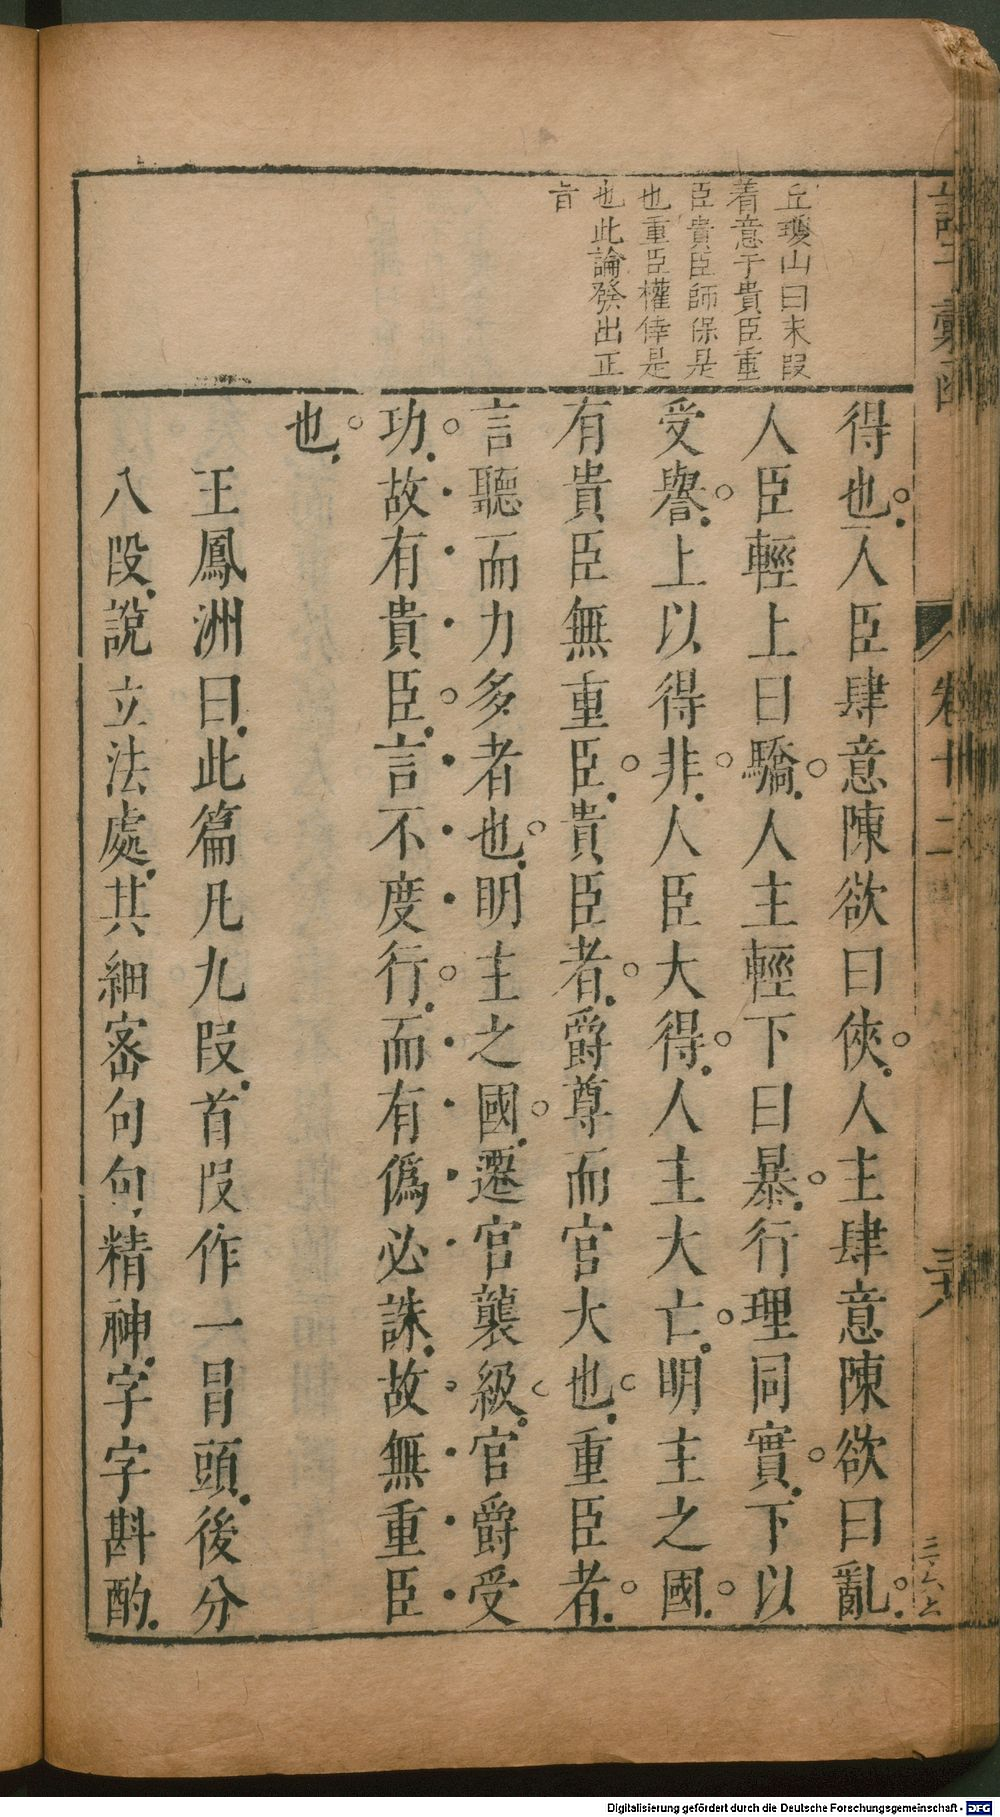 丘瓊山曰末段
着意于貴臣重
臣貴臣師保是
也重臣權倖是
也此論發出正
旨
得也人臣肆意陳欲曰俠人主肆意陳欲曰亂
人臣輕上曰驕人主輕下曰暴行理同實下以
受譽上以得非人臣大得人主大亡明主之國
有貴臣無重臣貴臣者爵尊而官大也重臣者
言聽而力多者也明主之國遷官襲級官爵受
功故有貴臣言不度行而有僞必誅故無重臣
也
王鳳洲曰此篇凡九段首段作一冒頭後分
八段說立法處其細密句句精神字字斟酌
卷十二
Digitalisierung gefördert durch die Deutsche Forschungsgemeinschaft - DFG